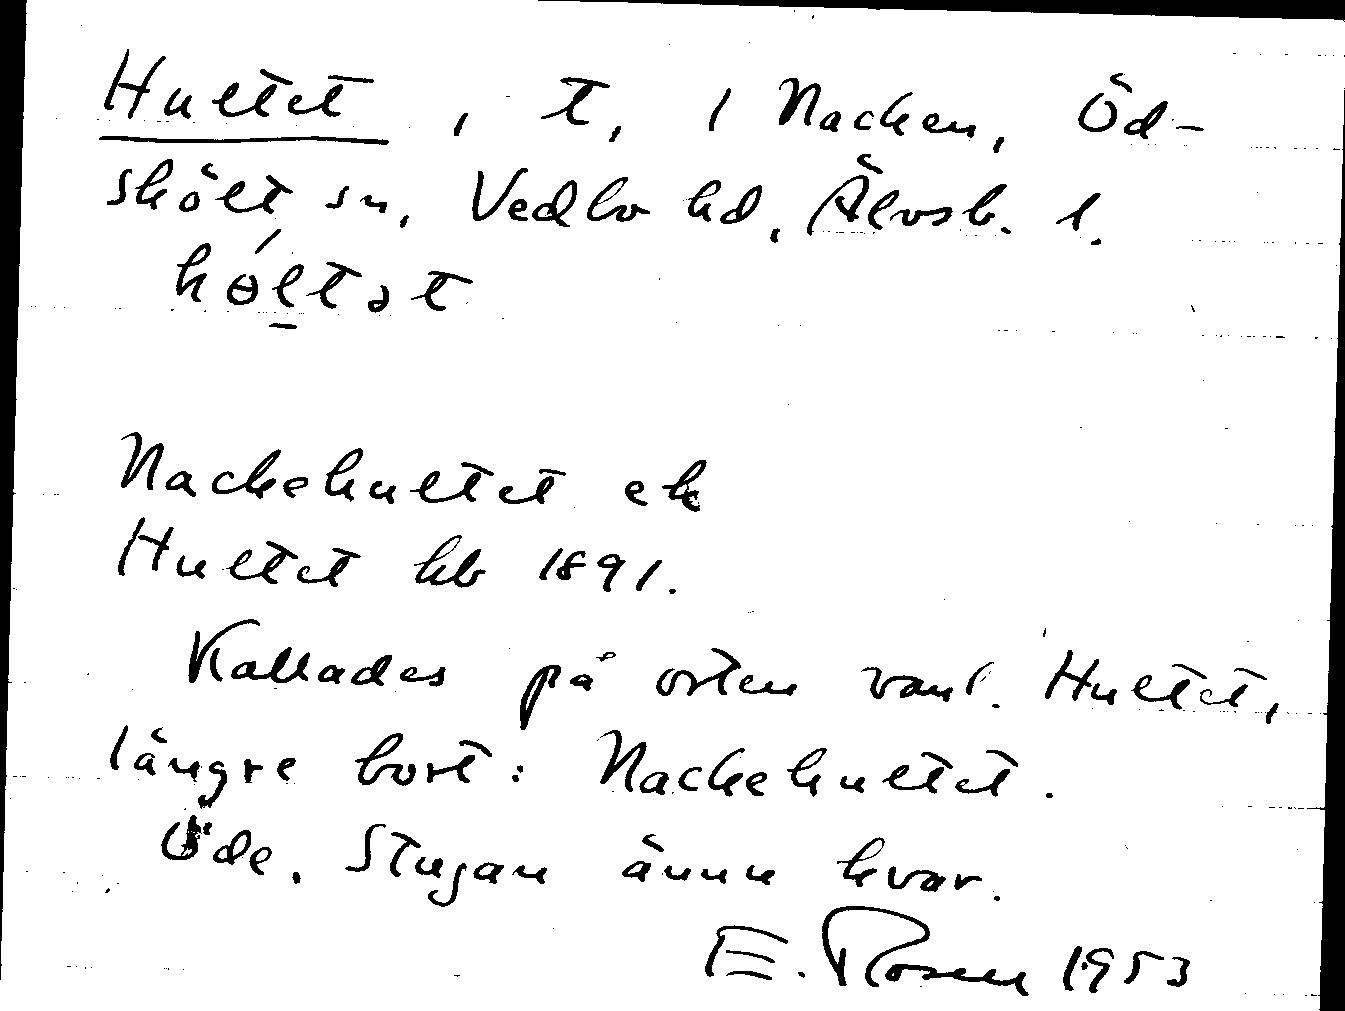 Hultet, t, 1 Nacken, Öd-
skölt sn, Vedbo hd, Älvsb. l.
hɵ́ltət
Nackehultet ek
Hultet kb 1891.
Kallades på orten vanl. Hultet,
längre bort: Nackehultet.
Öde. Stugan ännu kvar.
E. Rosen 1953